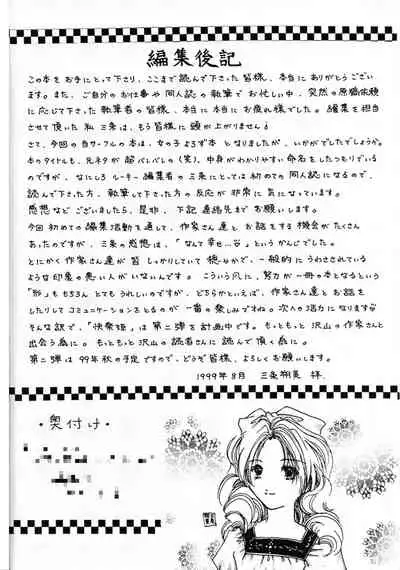 編集後記
この本をお手にとって下さり、ここまで読んで下さった皆様、本当にありがとうござい
ます。また、ご自分のお仕事や同人誌の執筆でお忙しい中、突然の原稿依頼
に応じて下さった執筆者の皆様、本当に本当にお疲れ様でした。編集を担当
させて頂いた私 三条は、もう皆様に頭が上がりません!
さて、今回の当サークルの本は、女の子よろず本となりましたが、いかがでしたでしょうか。
本のタイトルも、元ネタが超バレバレ(笑)、中身がわかりやすい命名をしたつもりでいる
のですが、なにしろルーキー編集者の三条にとっては初めての同人誌になるので、
読んで下さった方、執筆して下さった方の反応が非常に気になっています。
感想などございましたら、是非、下記連絡先までお願いします。
今回初めての編集活動を通して、作家さん達とお話をする機会がたくさん
あったのですが、三条の感想は、「なんて幸せ…
というかんじでした。
とにかく作家さんが皆しっかりしていて穏やかで、一般的にうわさされている
ような印象の悪い人がいないんです。こういう風に、努力が一冊の本となるという
「形」ももちろんとてもうれしいのですが、どちらかといえば、作家さん達とお話を
したりしてコミュニケーションをとるのが一番の楽しみですね。次への活力になりますッ
そんな訳で、
は第二弾を計画中です。もっともっと沢山の作家さんと
出会う為に。もっともっと沢山の読者さんに読んで頂く為に。
第二弾は99年秋の予定ですので、どうぞ皆様、よろしくお願いします。
1999年8月 三条
・奥付け・